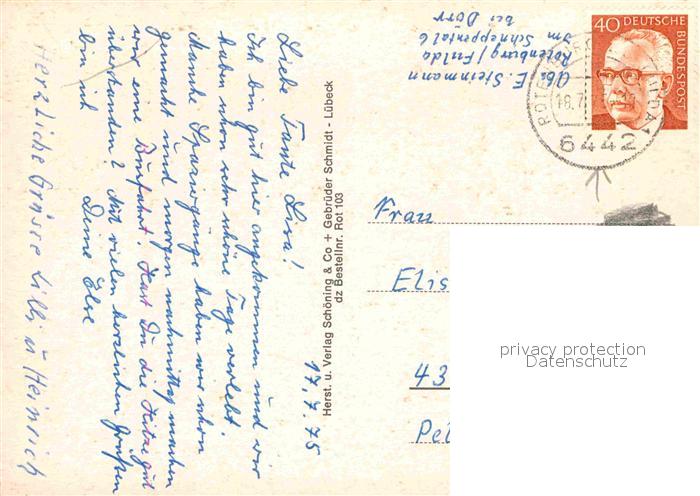 17.7.75
Liebe Tante Lisa!
Ich bin gut hier angekommen und wir
haben schon sehr schöne Tage verlebt.
Manche Spaziergänge haben wir schon
gemacht und morgen nachmittag machen
wir eine Busfahrt. Hast Du die Hitze gut
überstanden? Mit vielen herzlichen Grüßen
bin ich
Deine Else
Herzliche Grüsse Lilli u Heinrich
Herst. u. Verlag Schöning & Co + Gebrüder Schmidt - Lübeck
dz Bestellnr. Rot 103
Abs. E. Steinmann
Rotenburg/Fulda
Im Schneppental 6
bei Dorr
40 DEUTSCHE
BUNDESPOST
ROTE
ULDA
18.7
6442
Frau
Elis
43
Pel
privacy protection
Datenschutz